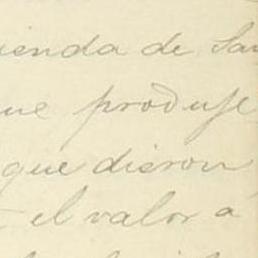 ienda de San
ue produje
que dieron
el valor á